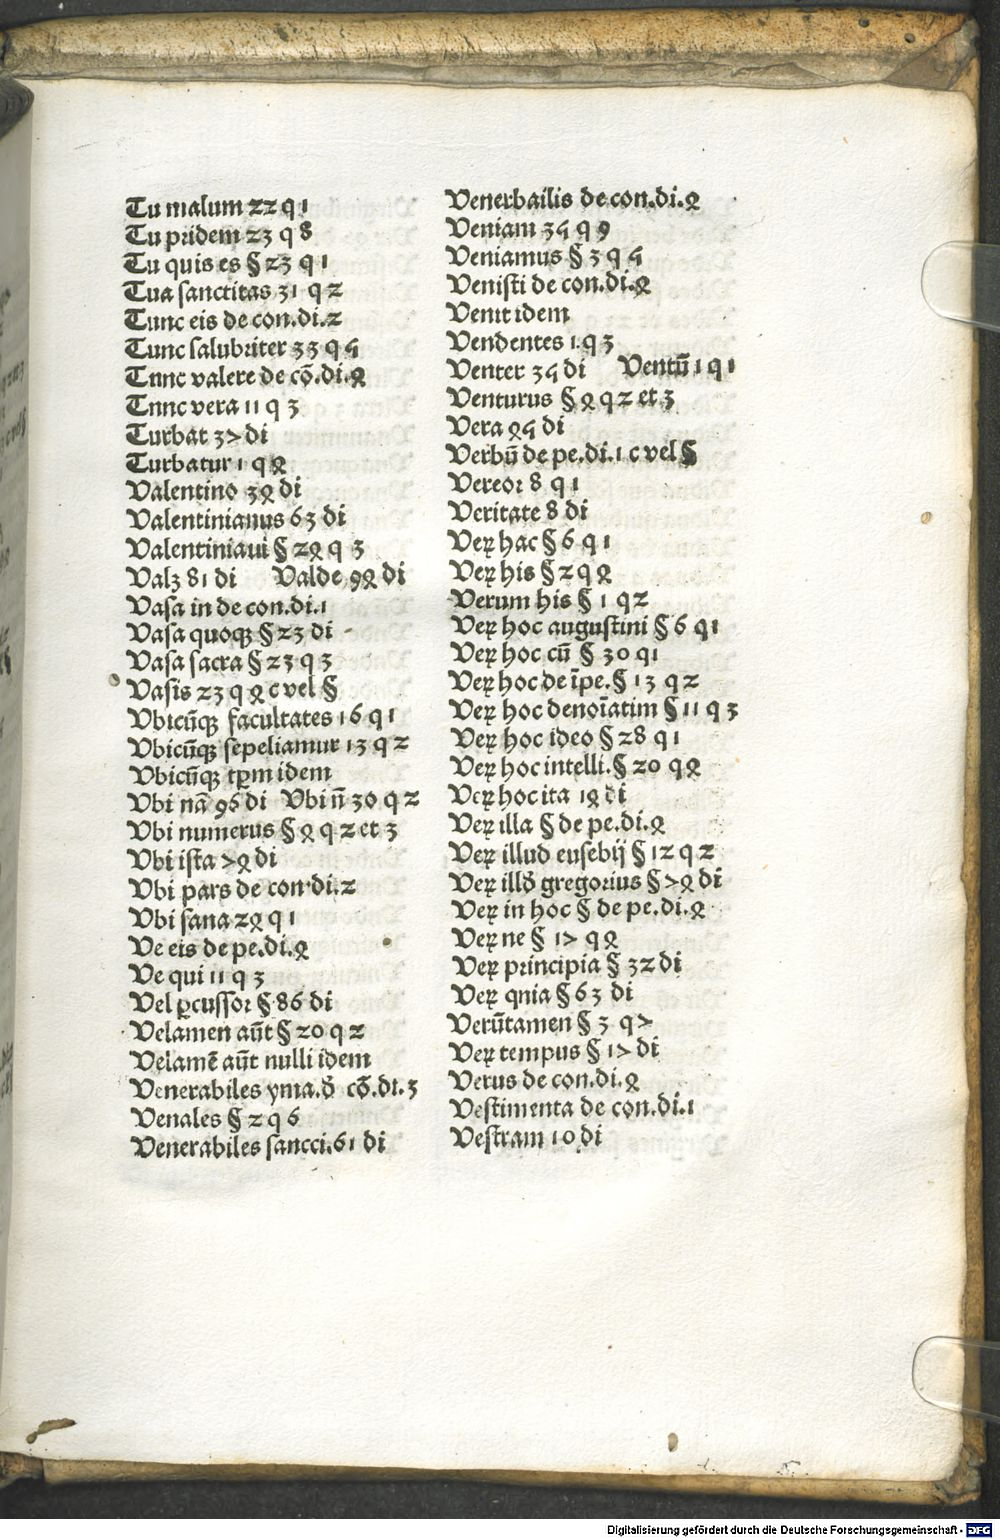 Tu malum 22 q 1
Tu pridem 23 q 8
Tu quis es § 23 q 1
Tua sanctitas 31 q 2
Tunc eis de con.di.2
Tunc salubriter 33 q 5
Tnnc valere de cō.di.4
Tnnc vera 11 q 3
Turbat 37 di
Turbatur 1 q 4
Valentino 34 di
Valentinianus 63 di
Valentiniaui § 24 q 3
Valꝫ 81 di Valde 94 di
Vasa in de con.di.1
Vasa quoqꝫ § 23 di
Vasa sacra § 23 q 3
Vasis 23 q 4 c vel §
Vbicūqꝫ facultates 16 q 1
Vbicūqꝫ sepeliamur 13 q 2
Vbicūqꝫ tꝑm idem
Vbi nā 96 di Vbi n̄ 30 q 2
Vbi numerus § 4 q 2 et 3
Vbi ista 74 di
Vbi pars de con.di.2
Vbi sana 24 q 1
Ve eis de pe.di.4
Ve qui 11 q 3
Vel ꝑcussor § 86 di
Velamen aūt § 20 q 2
Velamē aūt nulli idem
Venerabiles yma.δ̄ cō.di.3
Venales § 2 q 6
Venerabiles sancci.61 di
Venerbailis de con.di.4
Veniam 35 q 9
Veniamus § 3 q 5
Venisti de con.di.4
Venit idem
Vendentes 1.q 3
Venter 35 di Ventū 1 q 1
Venturus § 4 q 2 et 3
Vera 45 di
Verbū de pe.di.1 c vel §
Vereor 8 q 1
Veritate 8 di
Veꝝ hac § 6 q 1
Veꝝ his § 2 q 4
Verum his § 1 q 2
Veꝝ hoc augustini § 6 q 1
Veꝝ hoc cū § 30 q 1
Veꝝ hoc de īpe.§ 13 q 2
Veꝝ hoc denoīatim § 11 q 3
Veꝝ hoc ideo § 28 q 1
Veꝝ hoc intelli.§ 20 q 4
Veꝝ hoc ita 14 di
Veꝝ illa § de pe.di.4
Veꝝ illud eusebij § 12 q 2
Veꝝ illδ̄ gregorius § 74 di
Veꝝ in hoc § de pe.di.4
Veꝝ ne § 17 q 4
Veꝝ principia § 32 di
Veꝝ qnia § 63 di
Verūtamen § 3 q 7
Veꝝ tempus § 17 di
Verus de con.di.4
Vestimenta de con.di.1
Vestram 10 di
Digitalisierung gefördert durch die Deutsche Forschungsgemeinschaft - DFG